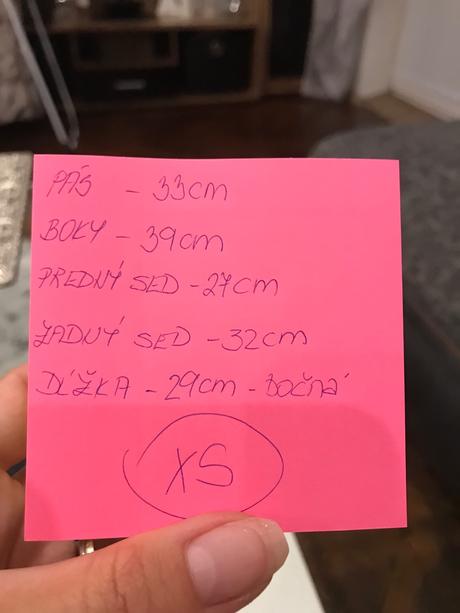 PÁS - 33cm
BOKY - 39cm
PREDNÝ SED - 27cm
ZADNÝ SED - 32cm
DĹŽKA - 29cm - BOČNÁ
XS